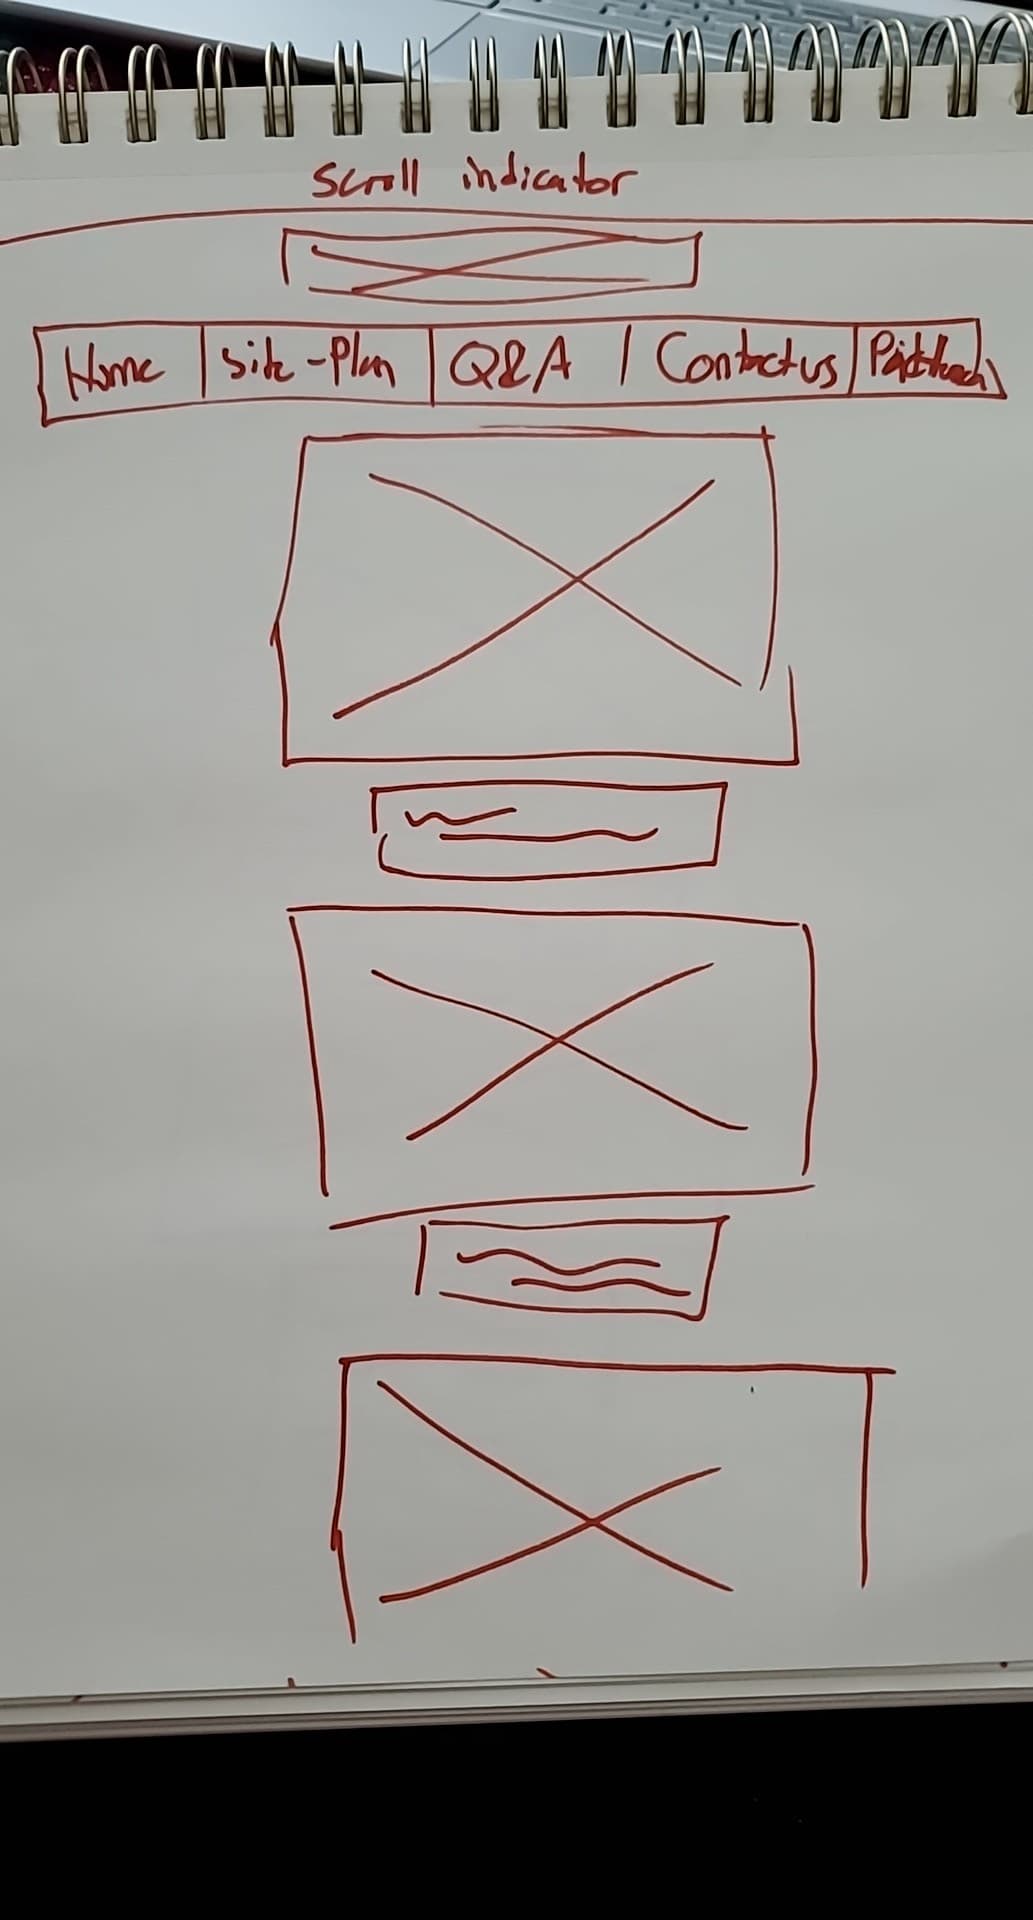 Scroll indicator
Home | Site-Plan | Q&A | Contact us |